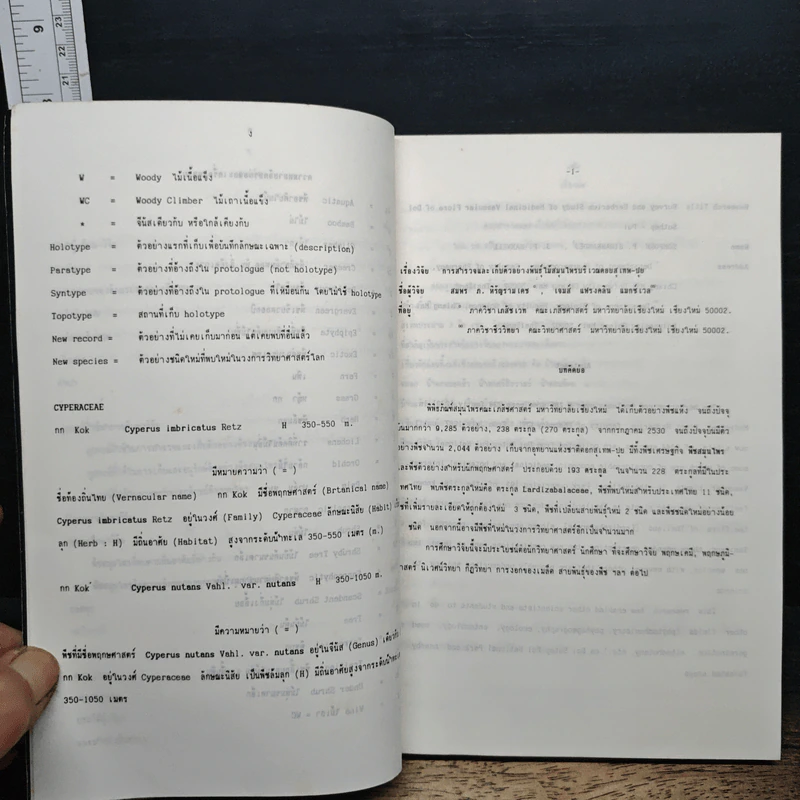 ง
W = Woody ไม้เนื้อแข็ง
WC = Woody Climber ไม้เถาเนื้อแข็ง
* = จีนัสเดียวกับ หรือใกล้เคียงกับ
Holotype = ตัวอย่างแรกที่เก็บเพื่อบันทึกลักษณะเฉพาะ (description)
Paratype = ตัวอย่างที่อ้างถึงใน protologue (not holotype)
Syntype = ตัวอย่างที่อ้างถึงใน protologue ที่เหมือนกัน โดยไม่ใช้ holotype
Topotype = สถานที่เก็บ holotype
New record = ตัวอย่างที่ไม่เคยเก็บมาก่อน แต่เคยพบที่อื่นแล้ว
New species = ตัวอย่างชนิดใหม่ที่พบใหม่ในวงการวิทยาศาสตร์โลก
CYPERACEAE
กก Kok Cyperus imbricatus Retz H 350-550 m.
มีหมายความว่า ( = )
ชื่อท้องถิ่นไทย (Vernacular name) กก Kok มีชื่อพฤกษศาสตร์ (Brtanical name)
Cyperus imbricatus Retz อยู่ในวงศ์ (Family) Cyperaceae ลักษณะนิสัย (Habit)
ลุก (Herb : H) มีถิ่นอาศัย (Habitat) สูงจากระดับน้ำทะเล 350-550 เมตร (m.)
กก Kok Cyperus nutans Vahl. var. nutans H 350-1050 m.
มีความหมายว่า ( = )
พืชที่มีชื่อพฤกษศาสตร์ Cyperus nutans Vahl. var. nutans อยู่ในจีนัส (Genus) เดียวกับ
กก Kok อยู่ในวงศ์ Cyperaceae ลักษณะนิสัย เป็นพืชล้มลุก (H) มีถิ่นอาศัยสูงจากระดับน้ำทะเล
350-1050 เมตร
-1-
เรื่องวิจัย การสำรวจและเก็บตัวอย่างพันธุ์ไม้สมุนไพรบริเวณดอยสุเทพ-ปุย
ชื่อผู้วิจัย สมพร ภ. หิรัญรามเดช , เจมส์ แฟรงคลิน แมกซ์เวล
ที่อยู่ ภาควิชาเภสัชเวท คณะเภสัชศาสตร์ มหาวิทยาลัยเชียงใหม่ เชียงใหม่ 50002.
ภาควิชาชีววิทยา คณะวิทยาศาสตร์ มหาวิทยาลัยเชียงใหม่ เชียงใหม่ 50002.
บทคัดย่อ
พิพิธภัณฑ์สมุนไพรคณะเภสัชศาสตร์ มหาวิทยาลัยเชียงใหม่ ได้เก็บตัวอย่างพืชแห้ง จนถึงปัจจุ
บันมากกว่า 9,285 ตัวอย่าง, 238 ตระกูล (270 ตระกูล) จากกรกฎาคม 2530 จนถึงปัจจุบันมีตัว
อย่างพืชจำนวน 2,044 ตัวอย่าง เก็บจากอุทยานแห่งชาติดอยสุเทพ-ปุย มีทั้งพืชเศรษฐกิจ พืชสมุนไพร
และพืชตัวอย่างสำหรับนักพฤกษศาสตร์ ประกอบด้วย 193 ตระกูล ในจำนวน 228 ตระกูลที่มีในประ
เทศไทย พบพืชตระกูลใหม่คือ ตระกูล Lardizabalaceae, พืชที่พบใหม่สำหรับประเทศไทย 11 ชนิด,
ชที่เพิ่มรายละเอียดให้ถูกต้องใหม่ 3 ชนิด, พืชที่เปลี่ยนสายพันธุ์ใหม่ 2 ชนิด และพืชชนิดใหม่อย่างน้อย
ชนิด นอกจากนี้อาจมีพืชที่ใหม่ในวงการวิทยาศาสตร์อีกเป็นจำนวนมาก
การศึกษาวิจัยนี้จะมีประโยชน์ต่อนักวิทยาศาสตร์ นักศึกษา ที่จะศึกษาวิจัย พฤกษเคมี, พฤกษภูมิ-
าสตร์ นิเวศน์วิทยา กีฏวิทยา การงอกของเมล็ด สายพันธุ์ของพืช ฯลฯ ต่อไป